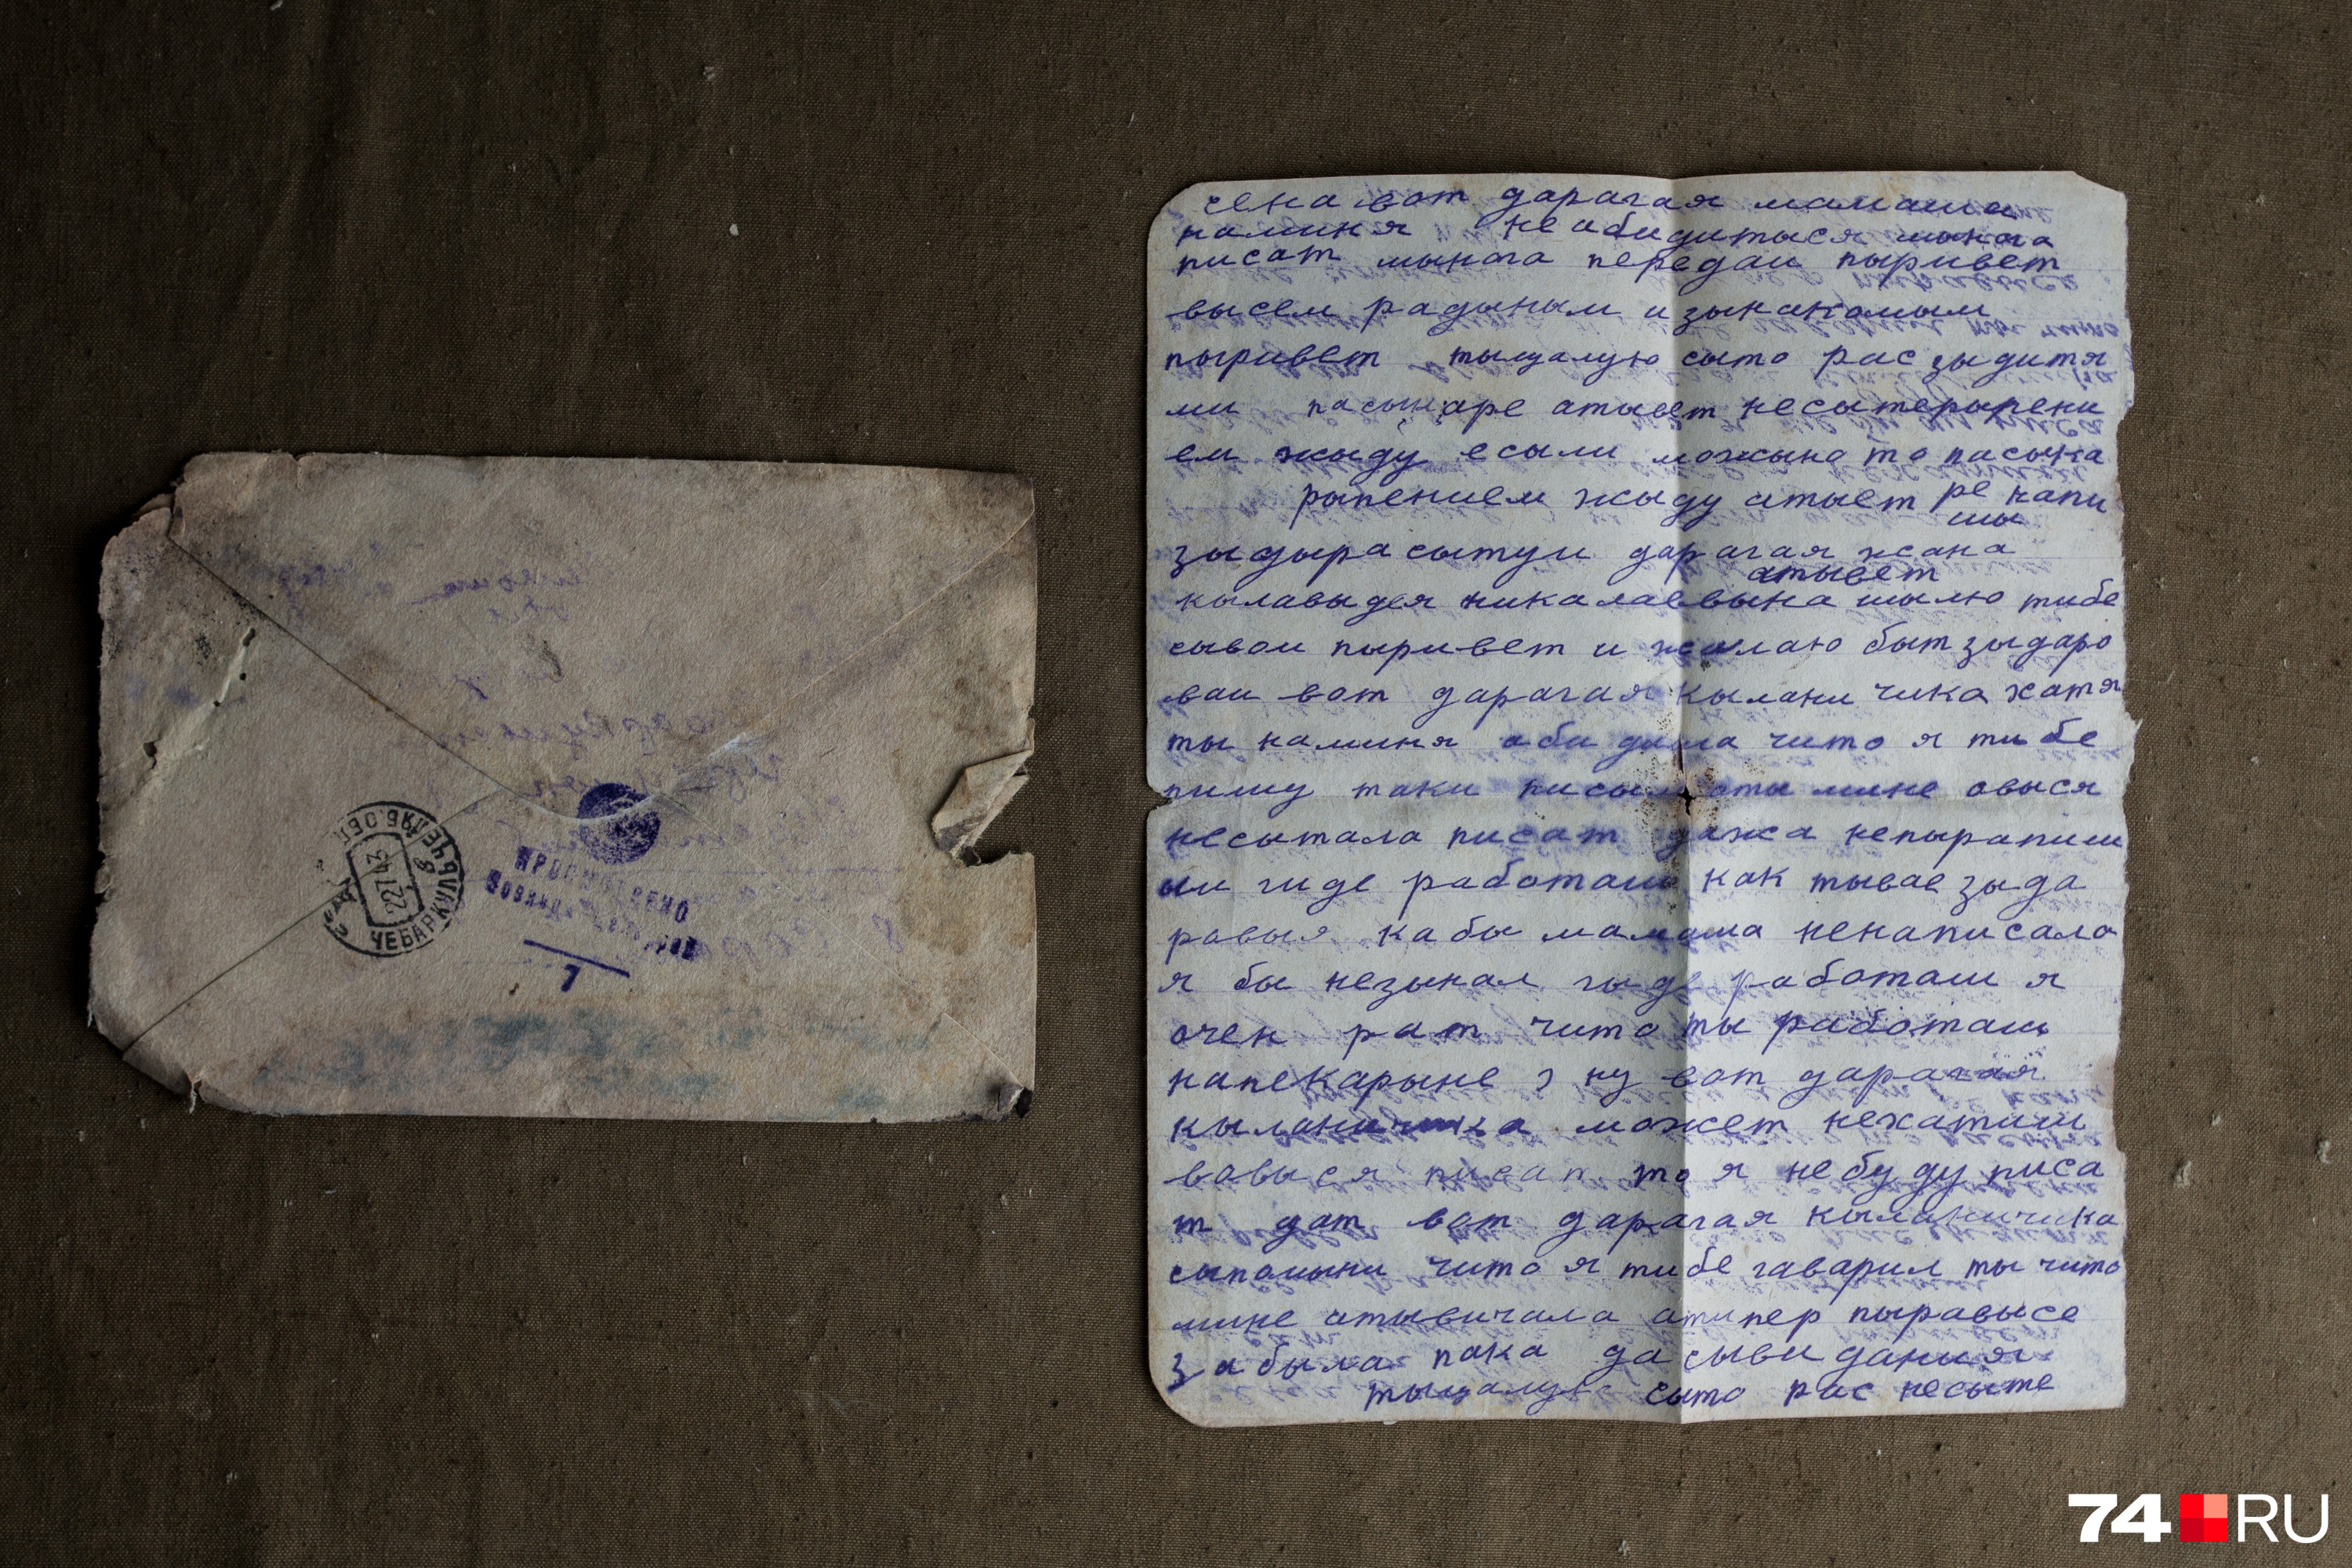 ЧЕБАРКУЛЬ ЧЕЛЯБ. ОБЛ.
22 7 43
ПРОСМОТРЕНО
7
сена вот дарагая мамаша
намина не абидитысся мынога
писат мынога передаи пыривет
высем радыным и зынакомым
пыривет тыцалую сыто рас зыдитя
ми атывет несытерыпени
ем жыду есыли можына то пасыка
рыпением жыду атывет ре чапи
шы
зыдырасытуи дарагая жана
атывет
кылавыдея никалаевына шылю тибе
сывои пыривет и жилаю быт зыдаро
ваи вот дарагая кыланичика хатя
ты намина абидила чито я тибе
пишу таки писыма ты мине овыся
несытала писат дажа непырапиш
ыш гиде работаш как тывае зыда
ровыя кабы мамаша ненаписала
я бы незынал гыде работаш я
очен рат чито ты работаш
напекарыне ну вот дарагая
кыланичика может нехатиш
вовыся писат то я небуду писа
т дат вот дарагая кыланичика
сыпомыни чито я тибе гаварил ты чито
мине атывичала атипер пыравысе
забыла пака дасывидания
тыцалую сыто рас несыте
74 RU